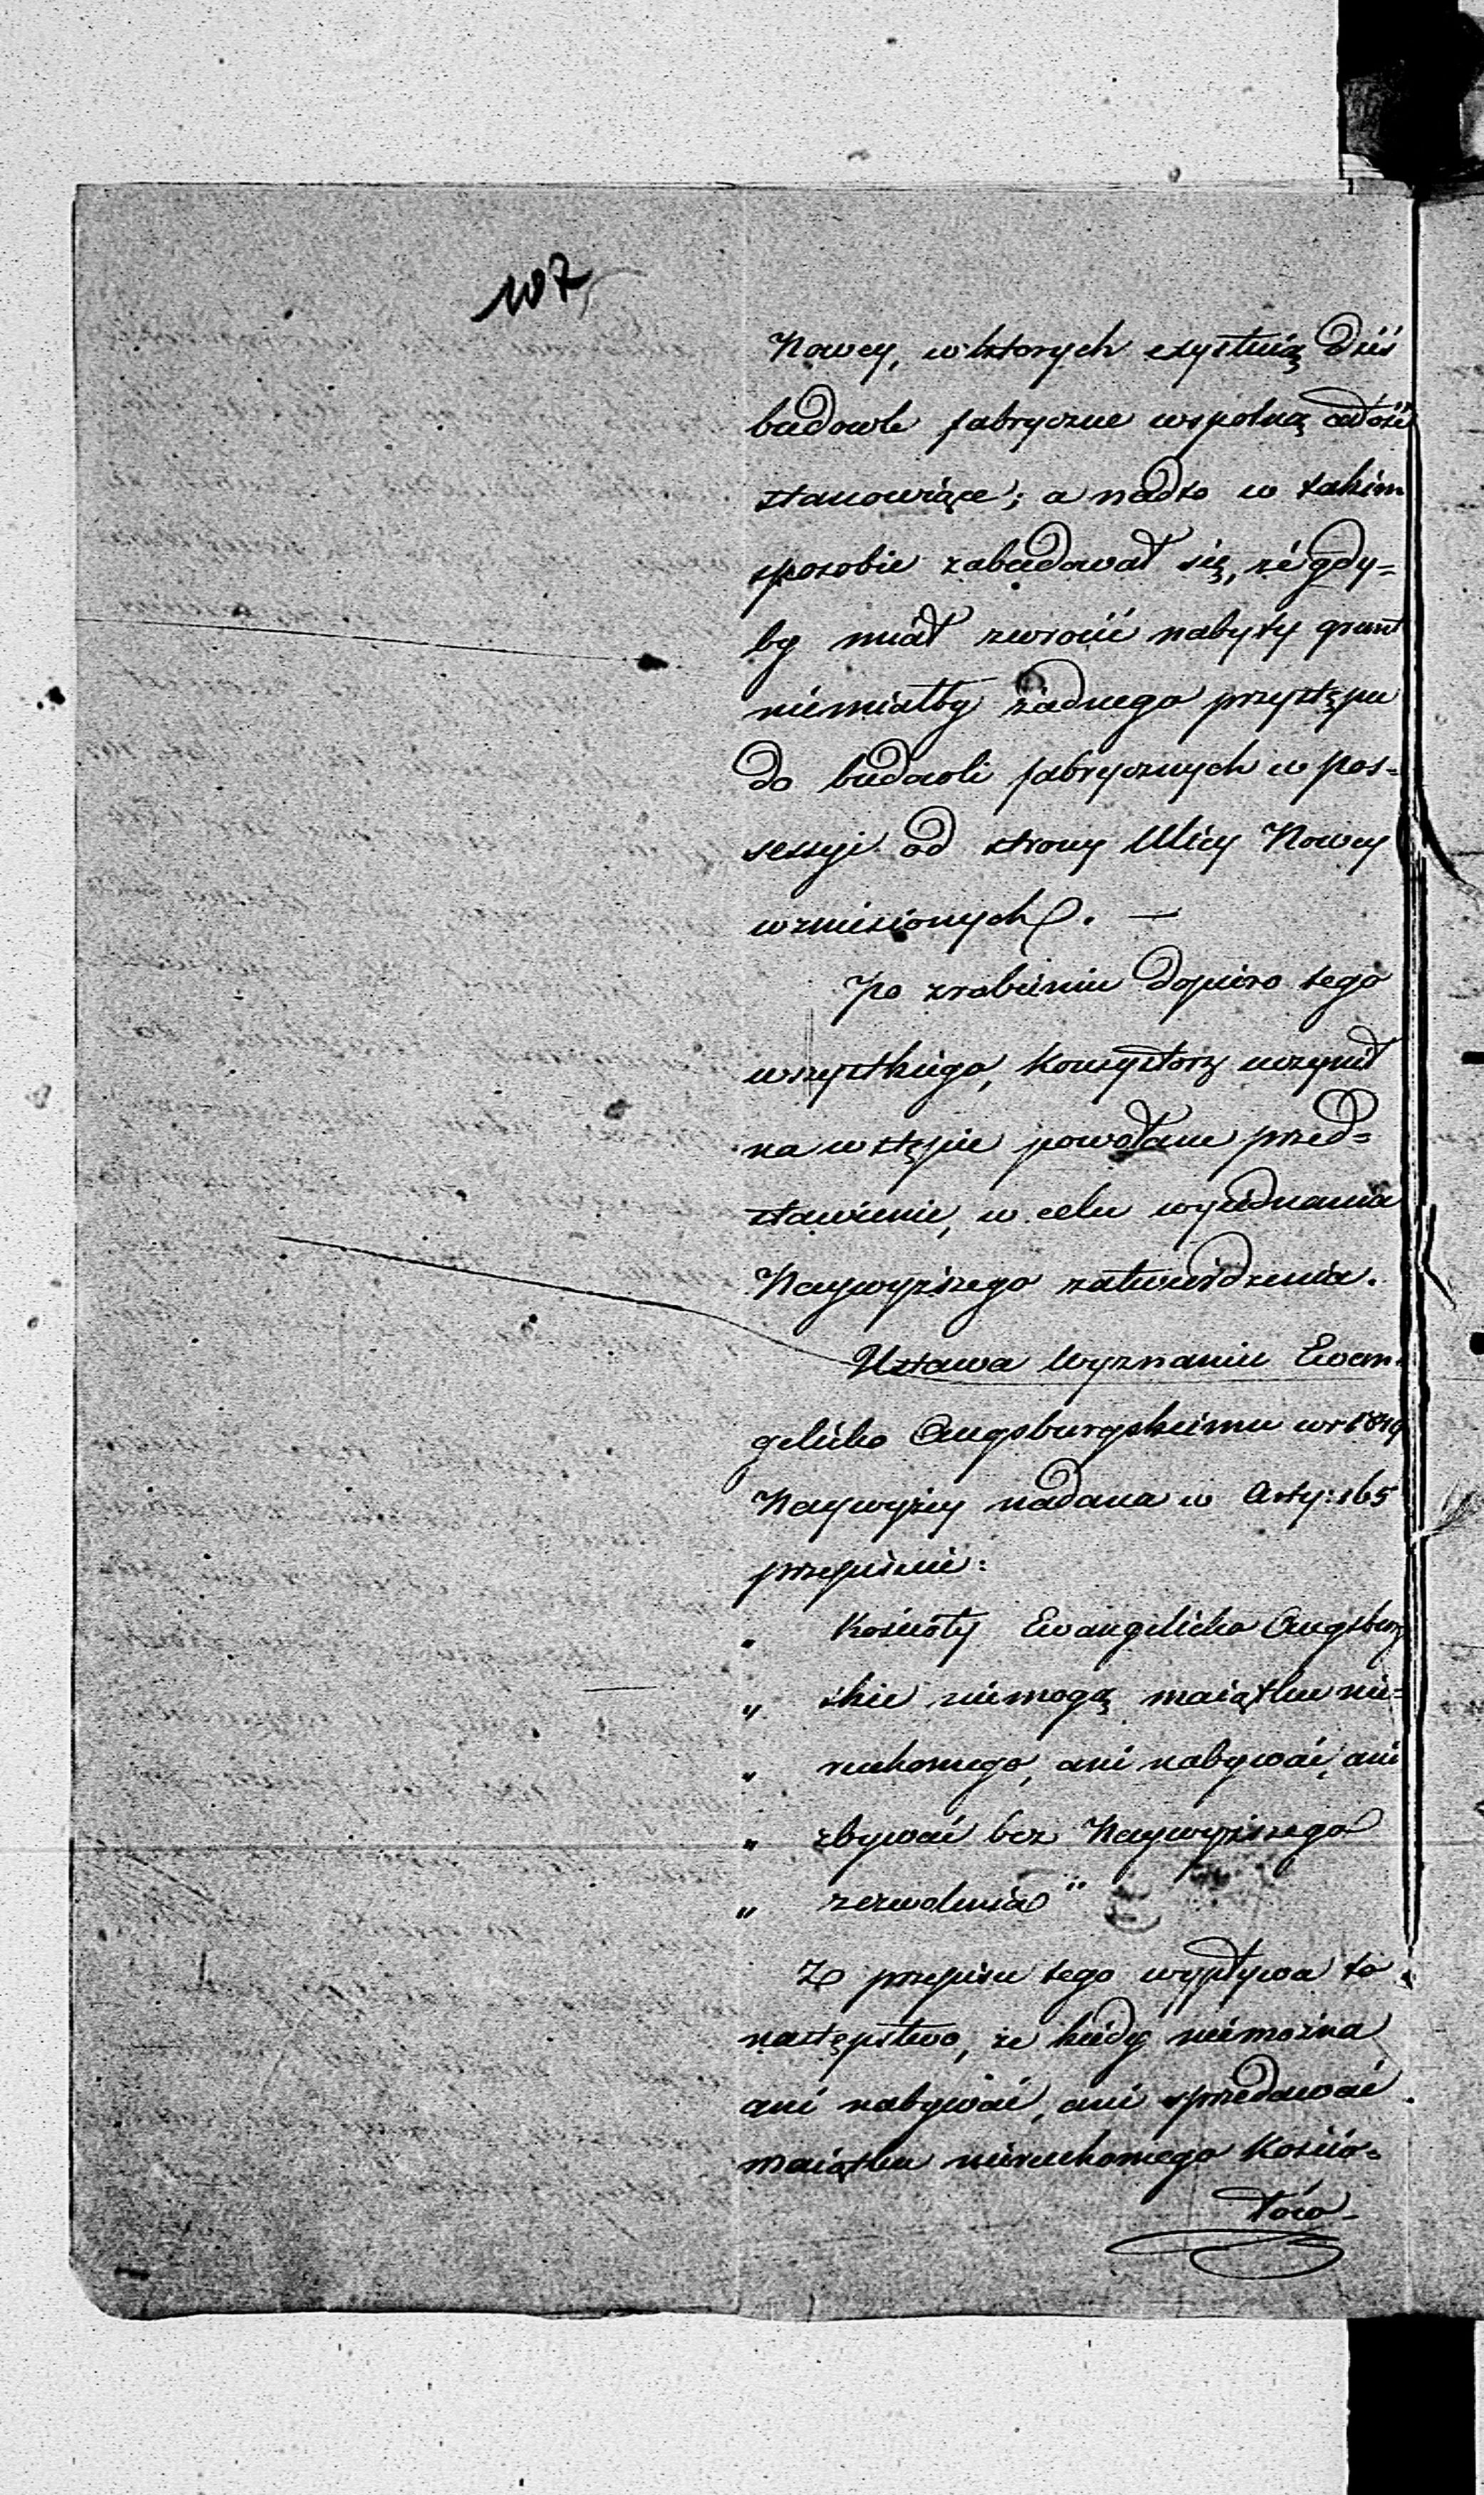 107
Nowey, w ktorych exystuią dziś
budowle fabryczne wspolną całość
stanowiące; a nadto w takim
sposobie zabudował się, że gdy=
by miał zwrócić nabyty grunt
niemiałby żadnego przystępu
do budowli fabrycznych w pos=
sessyi od strony Ulicy Nowey
wzniesionych. —
Po zrobieniu dopiero tego
wszystkiego, Konsystorz uczynił
na wstępie powołane przed=
stawienie, w celu wyiednania
Naywyższego zatwierdzenia.
Ustawa Wyznaniu Ewan=
gelicko Augsburgskiemu w r 1849
Naywyżey nadana w Arty: 165
przepisuie:
„ Kościoły Ewangelicko Augsburg
„ skie niemogą maiątku nie=
„ ruchomego, ani nabywać, ani
„ zbywać bez Naywyższego
„ zezwolenia"
Z przepisu tego wypływa to
następstwo, że kiedy niemożna
ani nabywać, ani sprzedawać
maiątku nieruchomego Kościo=
łów